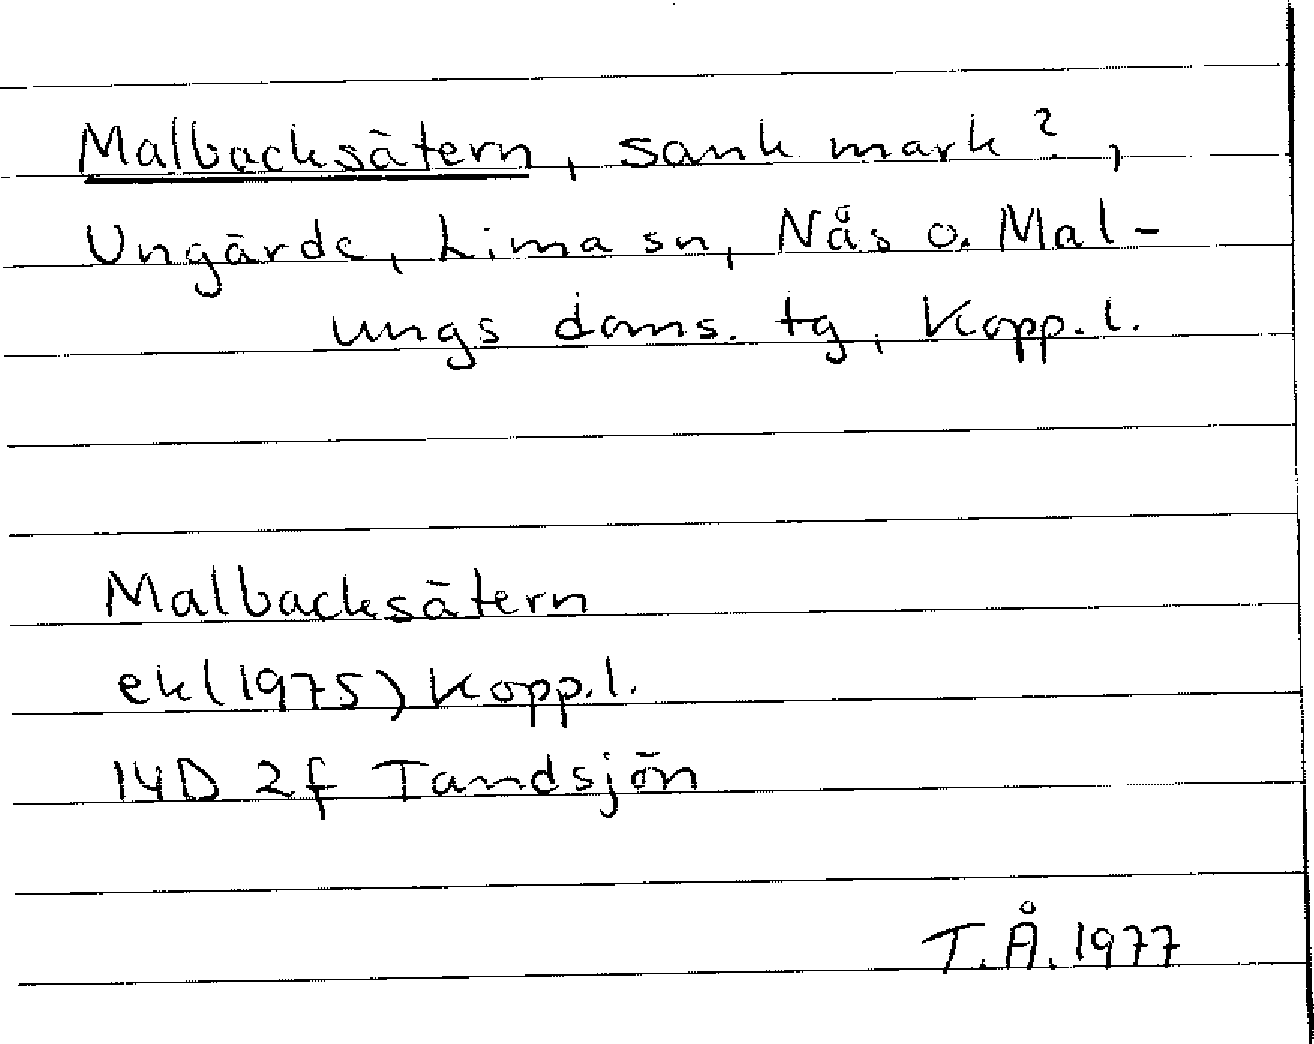 Malbacksätern, sank mark?,
Ungärde, Lima sn, Nås o. Mal-
ungs doms. tg, Kopp. l.
Malbacksätern
ek (1975) Kopp. l.
14D 2f Tandsjön
T.Å. 1977